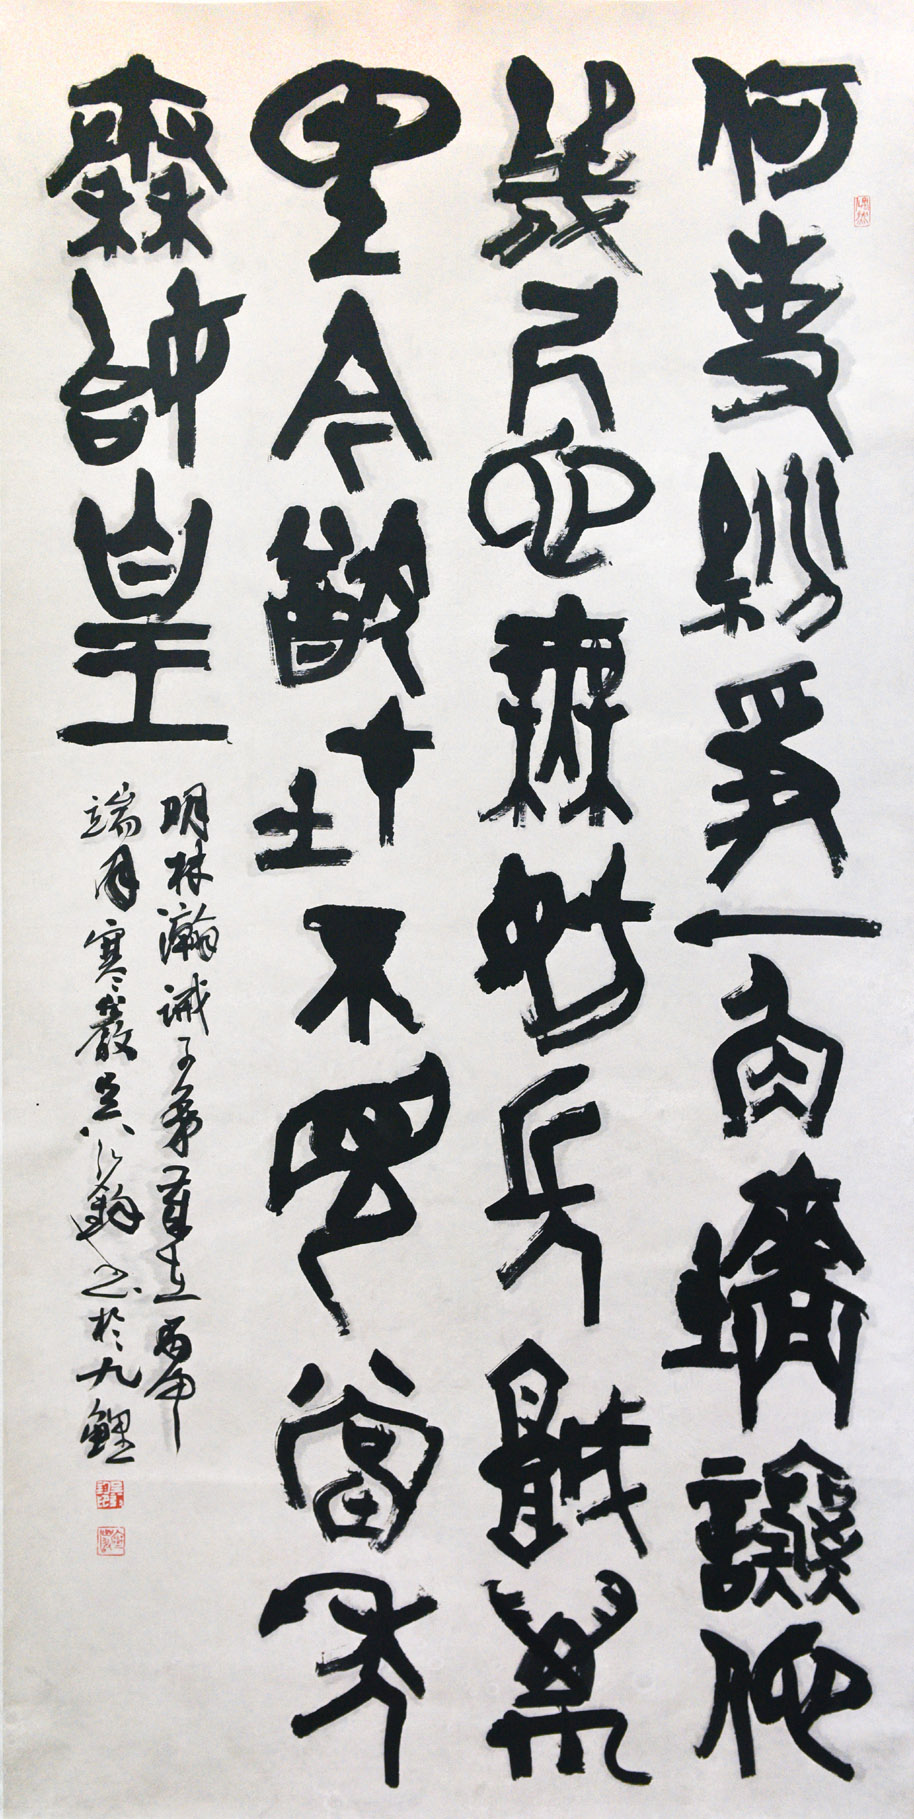 何事紛爭一角牆讓他
幾尺也無妨長城萬
里今猶在不見當年
秦始皇
明林瀚誡子弟歲在丙申
端月寒巖吴鈞书於九鯉